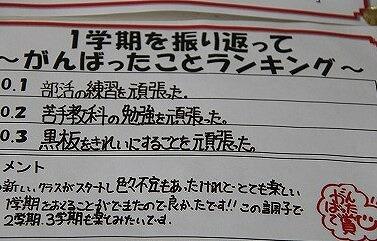 1学期を振り返って
～がんばったことランキング～
0.1 部活の練習を頑張った。
0.2 苦手教科の勉強を頑張った。
0.3 黒板をきれいにすることを頑張った。
メント
新しいクラスがスタートし色々不安もあったけれどとても楽しい
1学期をおくることができまたので良かったです!!この調子で
2学期、3学期も楽しみたいです。
がんばったで賞